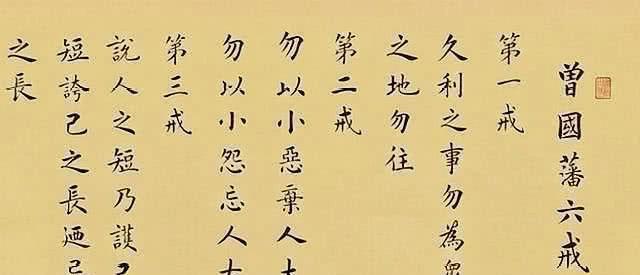 曾國藩六戒
第一戒
久利之事勿為
之地勿往
第二戒
勿以小惡棄人
勿以小怨忘人
第三戒
說人之短乃護
短誇己之長迺
之長